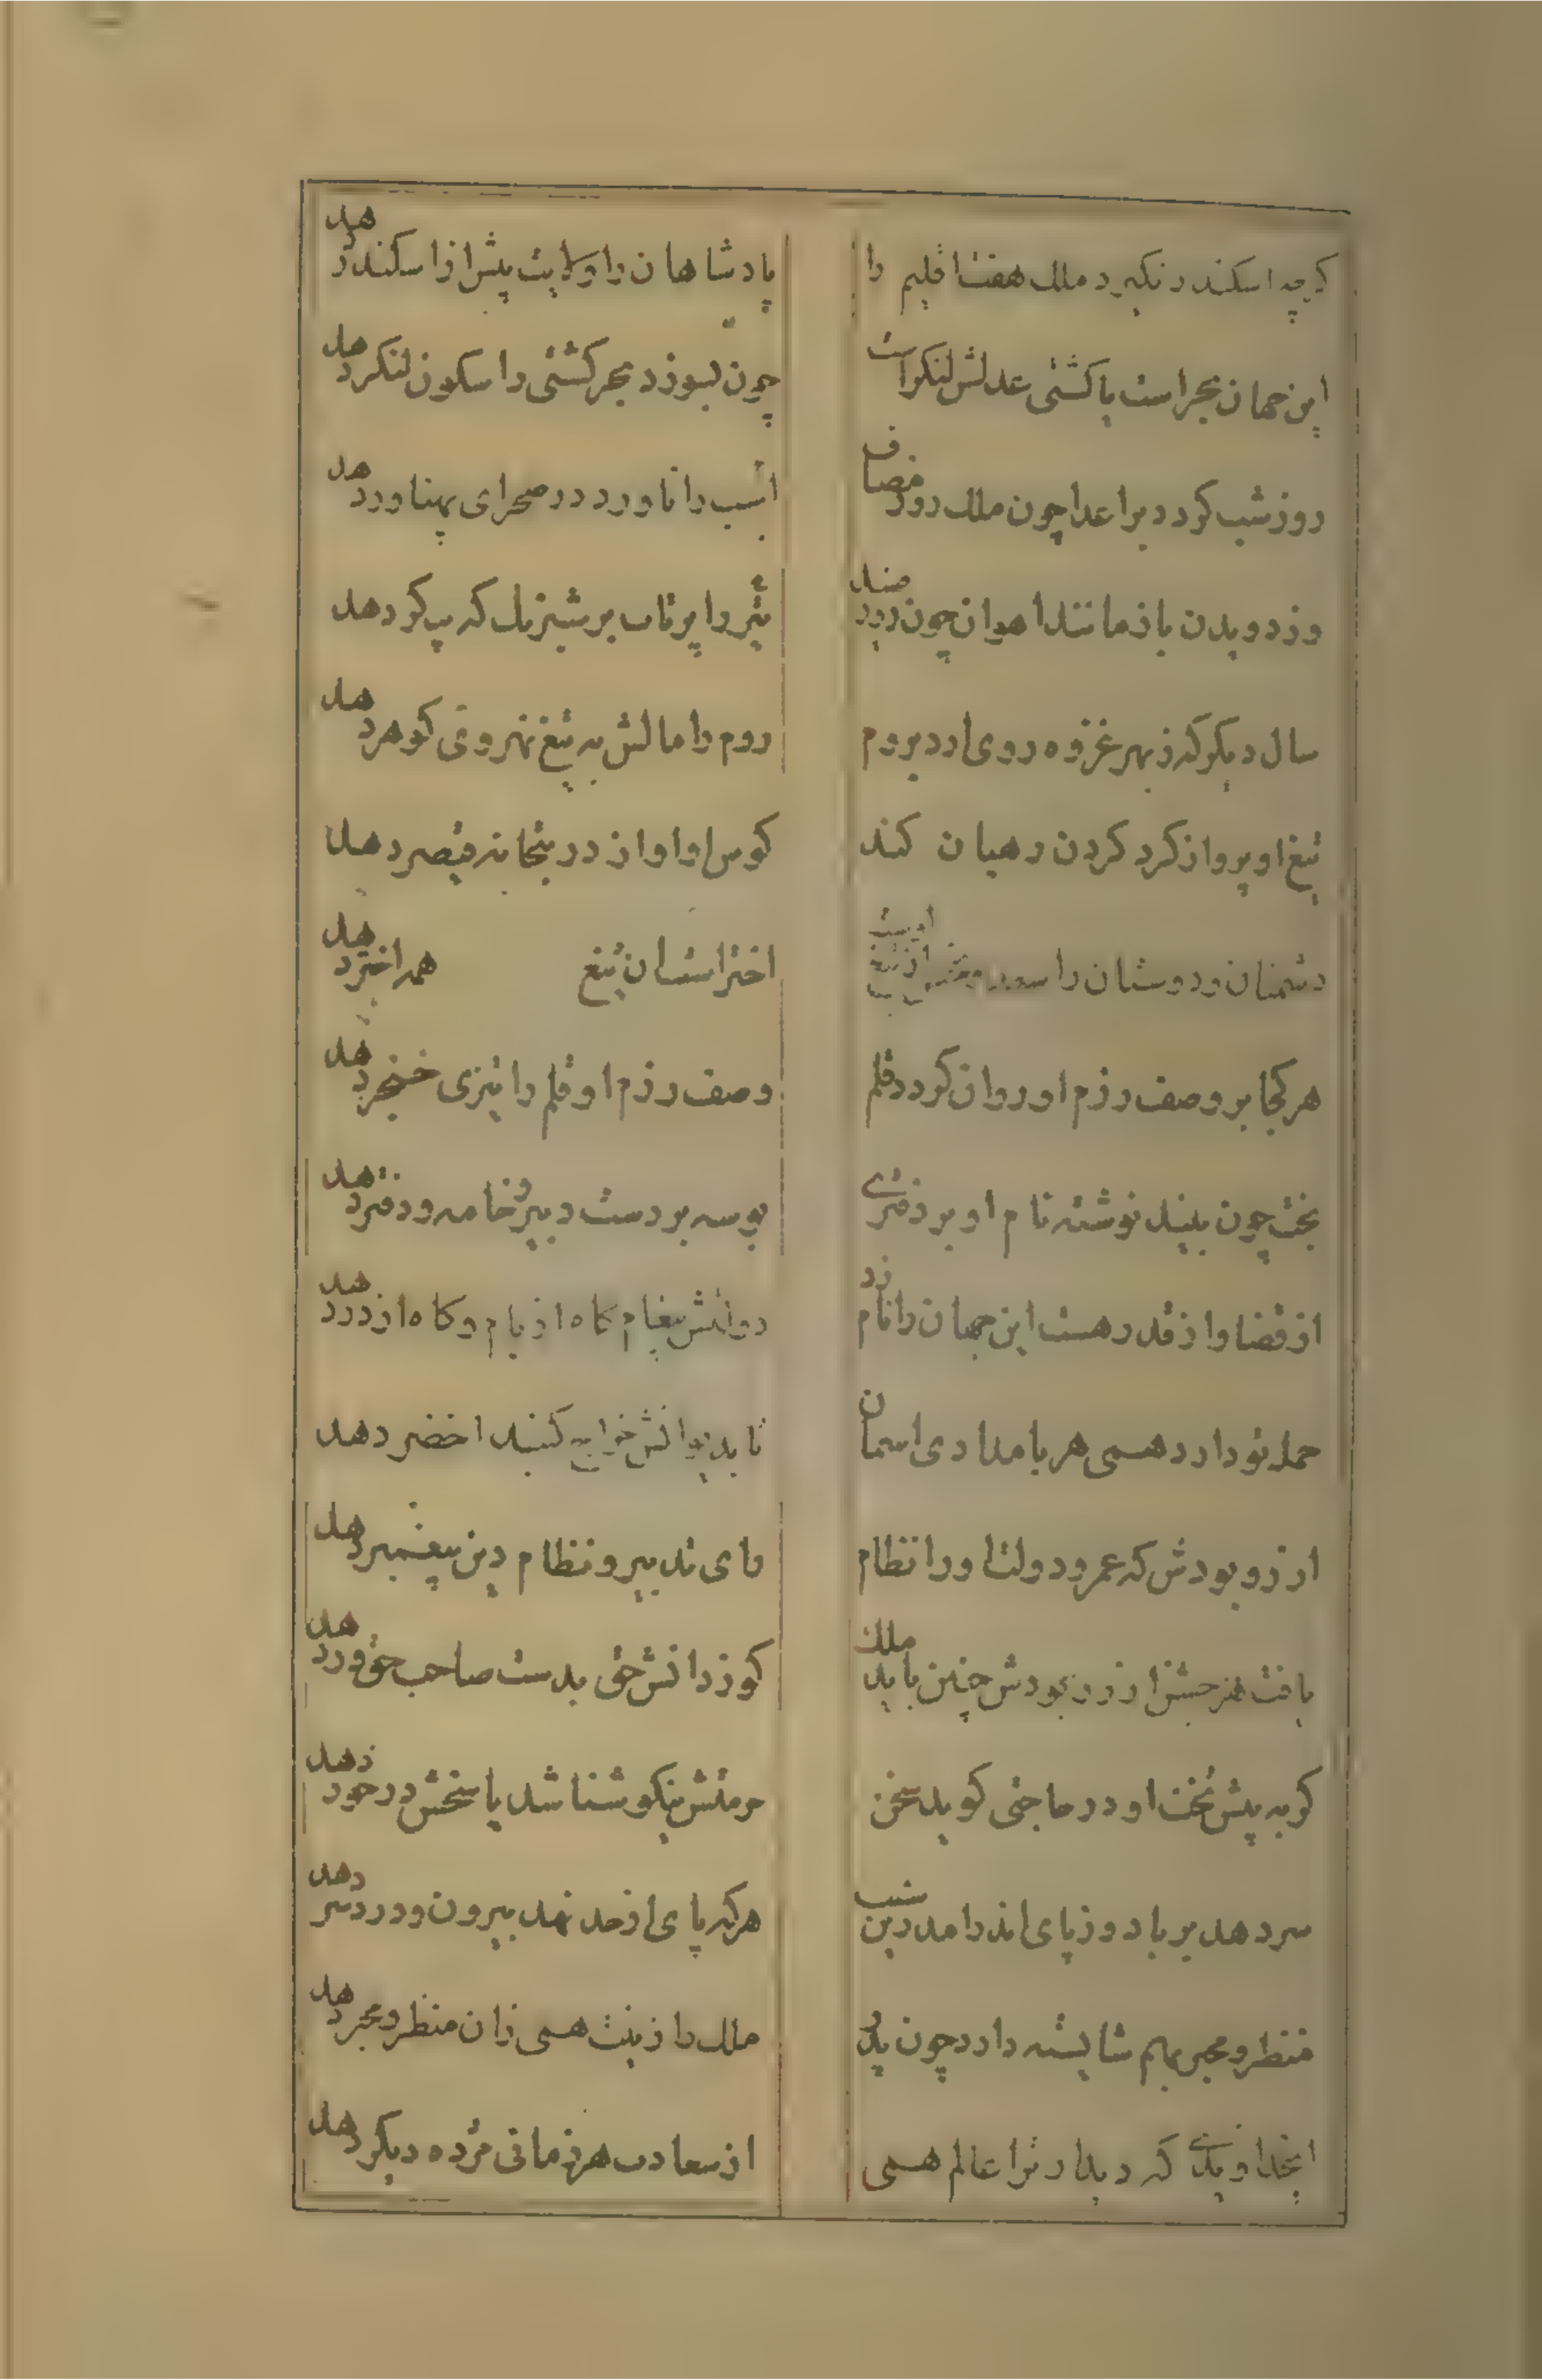 کرچه اسکندر نکیرد ملک هفت اقلیم را
پادشاهان را ولایت پیش از اسکندر دهد
این جهان بحر است یا کشتی عدلش لنکر است
چون نبود در بحر کشتی را سکون لنکر دهد
روز شب کردد بر اعدا چون ملک روز مصاف
اسب را ناورد در صحرای پهناور دهد
وز دویدن باز مانند اهوان چون
تیر را پرتاب بر شیر که دهد
سال دیکر کز بهر غزوه روی ارد بروم
روم را مالش به تیغ دهد
تیغ او پرواز کرد کردن رهبان کند
کوس او اواز در بتخانه قیصر دهد
دشمنان و دوستان را سعد و نحس از تیغ اوست
اختر است ان تیغ همه اختر دهد
هر کجا بر وصف رزم او روان کردد قلم
وصف رزم او قلم را تیزی خنجر دهد
بخت چون بیند نوشته نام او بر دفتری
بوسه بر دست دبیر و خامه و دفتر دهد
از قضا و از قدر هست این جهان را نام زد
دولتش پیغام کاه از بام و کاه از در دهد
حمله نو دارد همی هر بامدادی اسمان
تا بدیوانش خراج کنبد اخضر دهد
ارزو بودش که عمر و دولت او را نظام
رای تدبیر و نظام دین پیغمبر دهد
یافت هرچش ارزو بودش چنین باید ملک
کو ز دانش حق بدست صاحب حق ور دهد
کر به پیش تخت او درماجئی کوید سخن
حرمتش نیکو شناشد پاسخش در خود دهد
سر دهد بر باد و ز پای اندر امد
هرکه پای از حد نهد بیرون و درد سر دهد
منظر و مخبر بهم شایسته دارد چون پدر
ملک را زینت همی زان منظر و مخبر دهد
ایخداوندی که دیدار ترا عالم همی
از سعادت هر زمانی مژده دیکر دهد